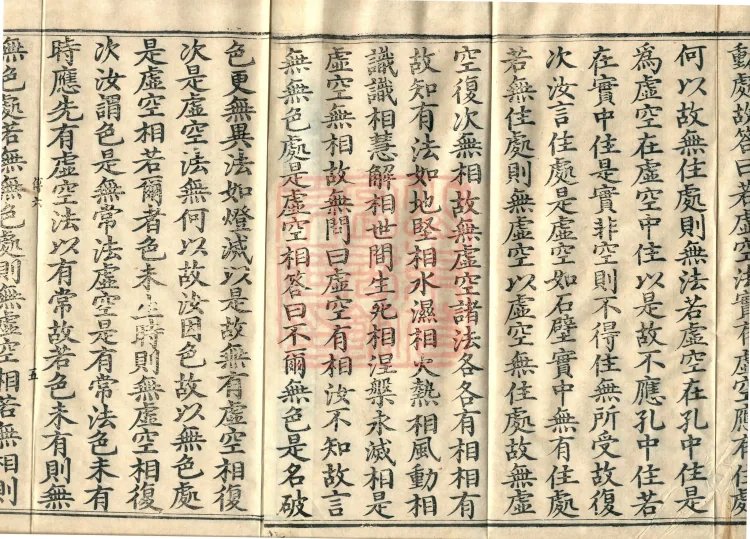 動處故答曰若虛空法實有虛空應有住處
何以故無住處則無法若虛空在孔中住是
為虛空在虛空中住以是故不應孔中住若
在實中住是實非空則不得住無所受故復
次汝言住處是虛空如石壁實中無有住處
若無住處則無虛空以虛空無住處故無虛
空復次無相故無虛空諸法各各有相相有
故知有法如地堅相水濕相火熱相風動相
識識相慧解相世間生死相涅槃永滅相是
虛空無相故無問曰虛空有相汝不知故言
無無色處是虛空相答曰不爾無色是名破
色更無異法如燈滅以是故無有虛空相復
次是虛空法無何以故汝因色故以無色處
是虛空相若爾者色未生時則無虛空相復
次汝謂色是無常法虛空是有常法色未有
時應先有虛空法以有常故若色未有則無
無色處若無無色處則無虛空相若無相則
五